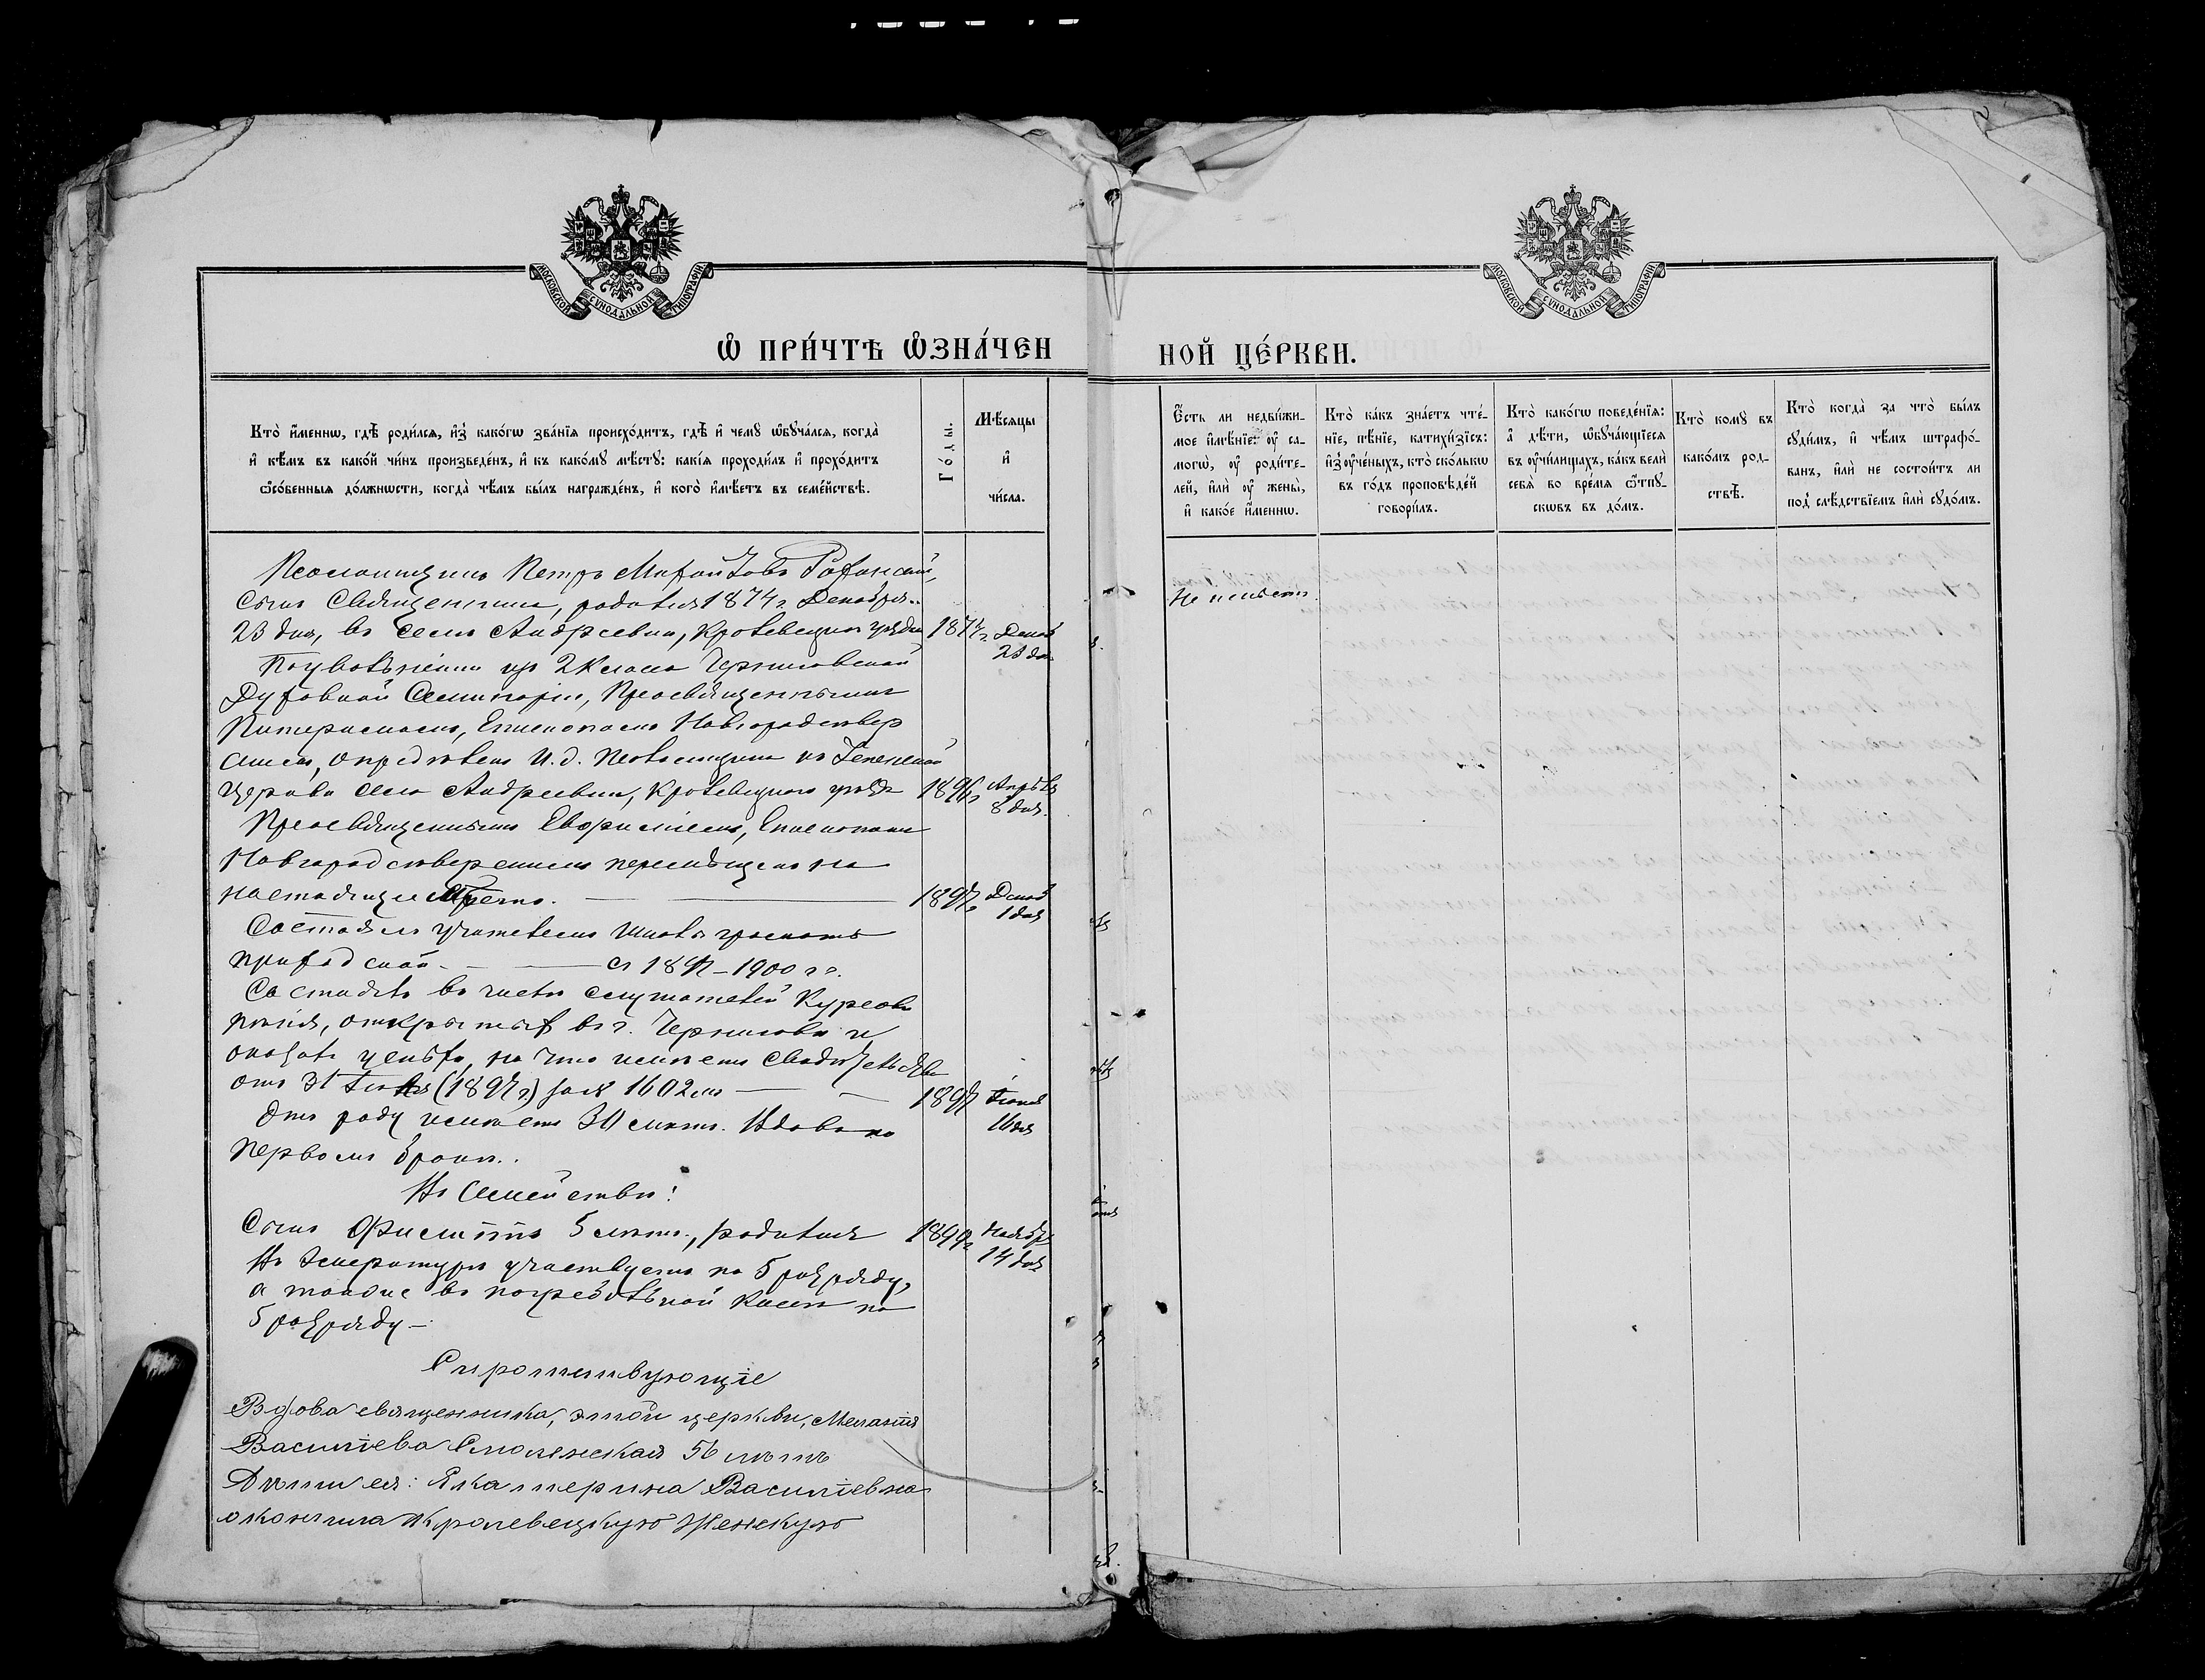 МОСКОВСКОЙ СѴНОДАЛЬНОЙ ТИПОГРАФІИ
МОСКОВСКОЙ СѴНОДАЛЬНОЙ ТИПОГРАФІИ
Ѡ ПРИ́ЧТѢ ѠЗНА́ЧЕН
НОЙ ЦЕ́РКВИ.
Кто̀ и҆́меннѡ, гдѣ̀ роди́лсѧ, и҆з̾ како́гѡ зва́нїѧ происхо́дитъ, гдѣ̀ и҆ чемꙋ̀ ѡ҆бꙋча́лсѧ, когда̀
и҆ кѣ́мъ въ како́й чи́нъ произведе́нъ, и҆ къ како́мꙋ мѣ́стꙋ: какі́ѧ проходи́лъ и҆ прохо́дитъ
ѻ҆со́бенныѧ до́лжнѡсти, когда̀ чѣ́мъ бы́лъ награжде́нъ, и҆ кого̀ и҆мѣ́етъ въ семе́йствѣ.
Го́ды.
Мѣ́сѧцы
и҆
чи́сла.
Е҆́сть ли недви́жи-
мое и҆мѣ́нїе: ᲂу҆ са-
могѡ̀, ᲂу҆ роди́те-
лей, и҆лѝ ᲂу҆ жены̀,
и҆ како́е и҆́меннѡ.
Кто̀ ка́къ зна́етъ чте́-
нїе, пѣ́нїе, катихи́зїсъ:
и҆з̾ ᲂу҆че́ныхъ, кто̀ ско́лькѡ
въ го́дъ проповѣ́дей
говори́лъ.
Кто̀ како́гѡ поведе́нїѧ:
а҆ дѣ́ти, ѡ҆бꙋча́ющїесѧ
въ ᲂу҆чи́лищахъ, ка́къ велѝ
себѧ̀ во вре́мѧ ѿпꙋ-
скѡвъ въ до́мъ.
Кто̀ комꙋ̀ въ
како́мъ род-
ствѣ̀.
Кто̀ когда̀ за что̀ бы́лъ
сꙋди́мъ, и҆ чѣ́мъ штрафо́-
ванъ, и҆лѝ не состои́тъ ли
под̾ слѣ́дствїемъ и҆лѝ сꙋдо́мъ.
Псаломщикъ Петръ
Сынъ Священника, родился 1874 г. Декабря
23 дня, въ селѣ Андреевкѣ, Кролевецкаго уѣзда 1874 г. Декаб. 23 дня
По увольненіи изъ 2 класса Черниговской
Духовной Семинаріи, Преосвященнымъ
Питиримомъ, Епископомъ Новгородсѣвер
скимъ, опредѣленъ и. д. Псаломщика къ
церкви села Андреевки, Кролевецкаго уѣзда 1896 г. Апрѣля 8 дня.
Преосвященнымъ Евфиміемъ, Епископомъ
Новгородсѣверскимъ перемѣщенъ на
настоящее мѣсто. 1897 г. Декаб. 1 дня
Состоялъ учителемъ школы грамоты
приходской. съ 1897–1900 гг.
Состоялъ въ числѣ слушателей курсовъ
пѣнія, открытыхъ въ г. Черниговѣ и
оказалъ успѣхи, на что имѣетъ свидѣтельство
отъ 31 (1897 г.) за № 1602 мъ 1897 16 дня
Отъ роду имѣетъ 30 лѣтъ. Вдовъ по
первомъ бракѣ.
Въ Семействѣ:
Сынъ 5 лѣтъ, родился 1899 г. Ноября 14 дня
Въ Эмеритурѣ участвуетъ по 5 разряду,
а также въ погребальной кассѣ по
5 разряду –
Сиротствующіе
Вдова священника, этой церкви, Меланія
Василіева Смоленская 56 лѣтъ
Дѣти ея: Екатерина Василіевна
окончила Кролевецкую Женскую
Не имѣетъ